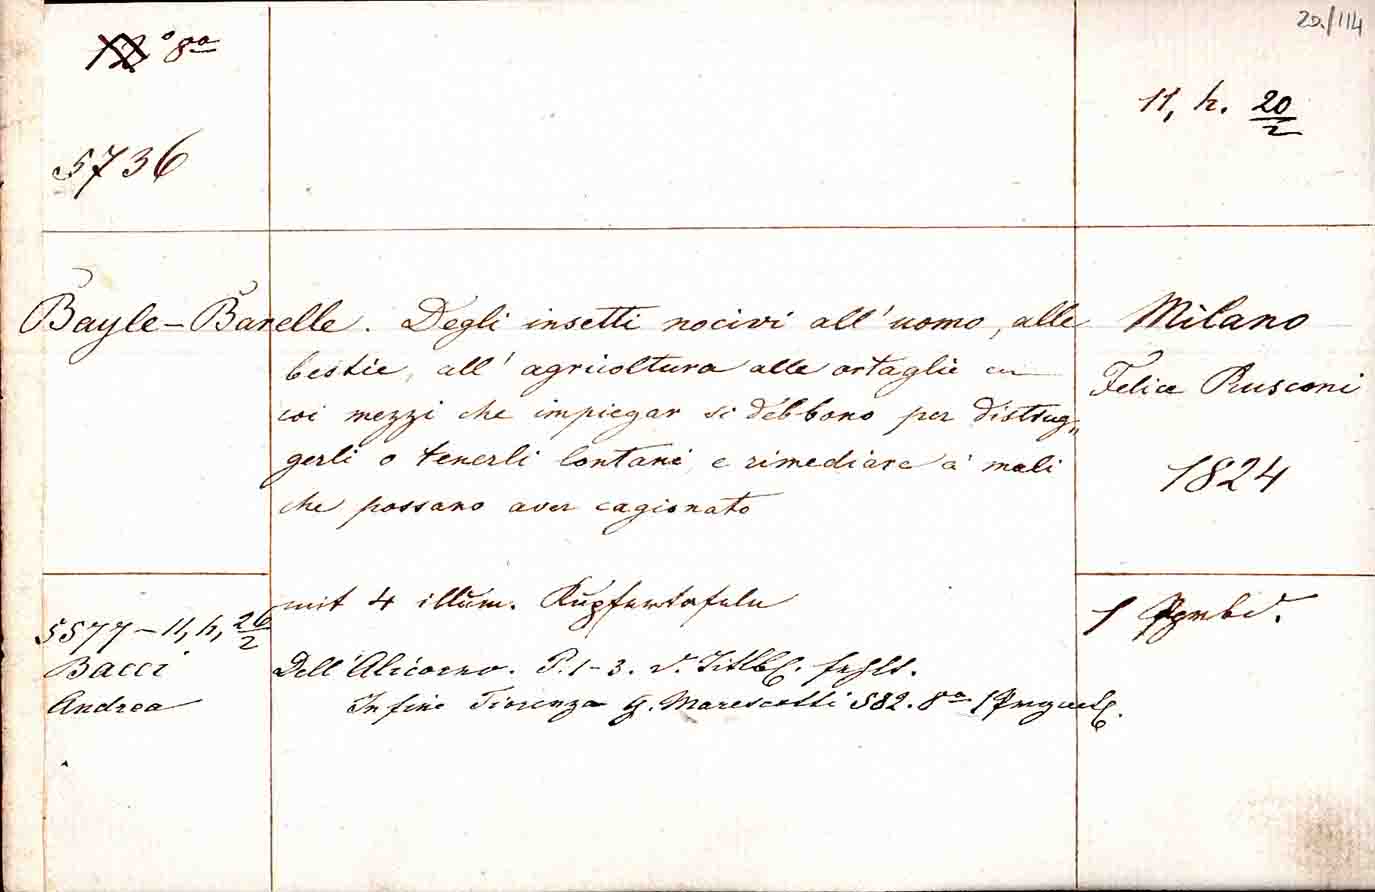 20./114
12° 8°°
11, h. 20/2
5736
Bayle-Barelle. Degli insetti nocivi all' uomo, alle
bestie, all' agricoltura alle ortaglie con
coi mezzi che impiegar si debbono per distrug„
gerli o tenerli lontani, e rimediare a' mali
che possano aver cagionato
Milano
Felice Rusconi
1824
mit 4 illum. Kupfertafeln
1 Pgmbd.
5577 - 11, h, 26/2
Bacci
Andrea
Dell' Alicorno. P. 1-3. d. Titlbl. fehlt.
In fine Fiorenza G. Marescotti 582. 8° 1